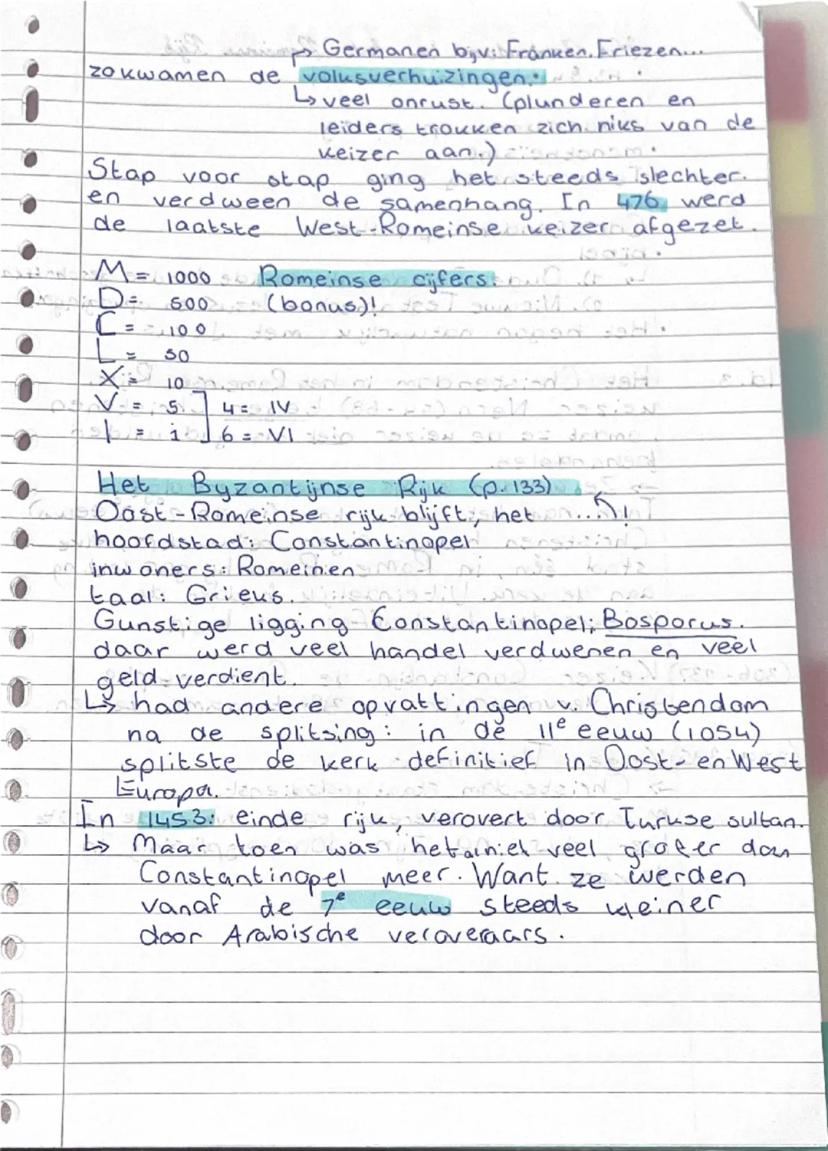 ↱ Germanen bijv: Franken, Friezen...
zo kwamen de volksverhuizingen.
↳ veel onrust. (plunderen en
leiders trokken zich niks van de
keizer aan.)
Stap voor stap ging het steeds slechter.
en verdween de samenhang. In 476 werd
de laatste West-Romeinse keizer afgezet.
M = 1000 Romeinse cijfers.
D = 500 (bonus)!
C = 100
L = 50
X = 10
V = 5 ] 4 = IV
I = 1 ] 6 = VI
Het Byzantijnse Rijk (p.133)
Oost-Romeinse rijk blijft, het ...!
hoofdstad: Constantinopel
inwoners: Romeinen
taal: Grieks.
Gunstige ligging Constantinopel; Bosporus.
daar werd veel handel verdwenen en veel
geld verdient.
↳ had andere opvattingen v. Christendom
na de splitsing: in de 11e eeuw (1054)
splitste de kerk definitief in Oost- en West
Europa.
In 1453: einde rijk, verovert door Turkse sultan.
↳ Maar toen was het al niet veel groter dan
Constantinopel meer. Want ze werden
vanaf de 7e eeuw steeds kleiner
door Arabische veroveraars.